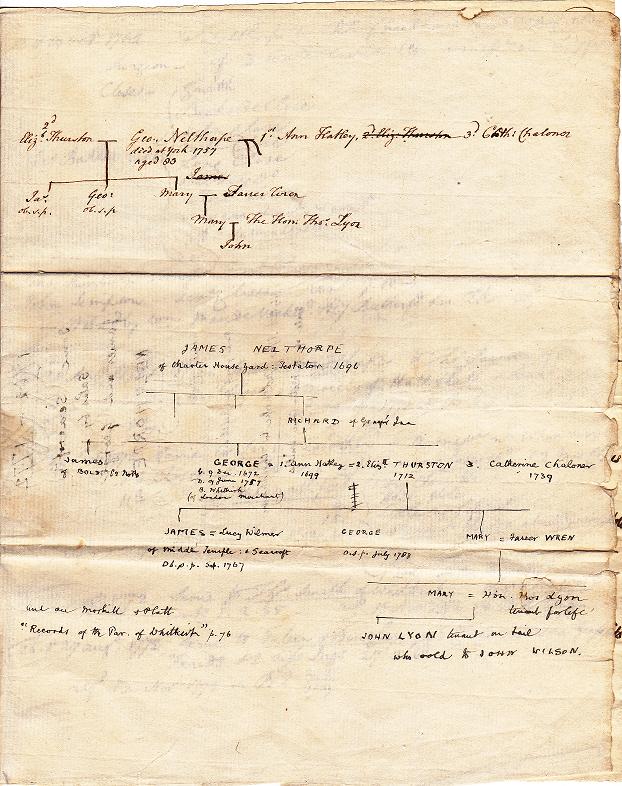 2d
Eliz: Thurston — Geo. Nelthorpe — 1st Ann Hatley, 2d Eliz Thurston 3d Cath: Chaloner
died at York 1757
aged 83
James
Jas. Geo: Mary — Farrer Wren
ob. s.p. ob. s.p.
Mary — The Hon. Thos. Lyon
John
JAMES NELTHORPE
of Charter House Yard: Testator 1696
RICHARD of Gray's Inn
James
of
GEORGE = 1. Ann Hatley = 2. Eliz THURSTON 3. Catherine Chaloner
b. 9 Dec. 1672 1699 1712 1739
D. 9 June 1757
(of London merchant)
JAMES = Lucy Wilmer GEORGE MARY = Farrer WREN
of Middle Temple: & Seacroft O.s.p. July 1788
Ob. s.p. 1767
MARY = Hon. Thos Lyon
tenant for life
and see Morkill & Platt
"Records of the Par. of Whitkirk" p. 76
JOHN LYON tenant in tail
who sold to JOHN WILSON.